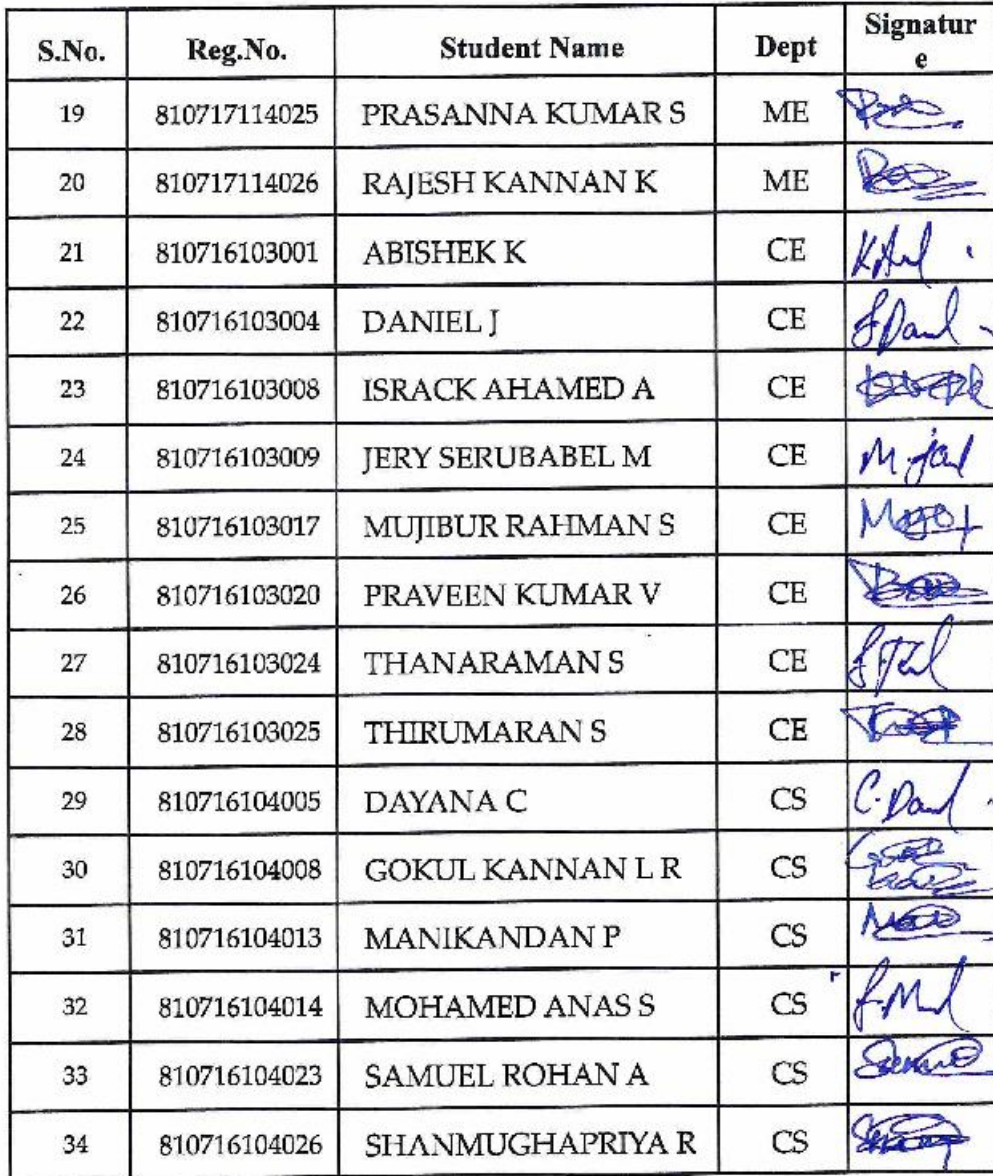 S.No. Reg.No. Student Name Dept Signatur
e
19 810717114025 PRASANNA KUMAR S ME
20 810717114026 RAJESH KANNAN K ME
21 810716103001 ABISHEK K CE
22 810716103004 DANIEL J CE
23 810716103008 ISRACK AHAMED A CE
24 810716103009 JERY SERUBABEL M CE
25 810716103017 MUJIBUR RAHMAN S CE
26 810716103020 PRAVEEN KUMAR V CE
27 810716103024 THANARAMAN S CE
28 810716103025 THIRUMARAN S CE
29 810716104005 DAYANA C CS
30 810716104008 GOKUL KANNAN L R CS
31 810716104013 MANIKANDAN P CS
32 810716104014 MOHAMED ANAS S CS
33 810716104023 SAMUEL ROHAN A CS
34 810716104026 SHANMUGHAPRIYA R CS